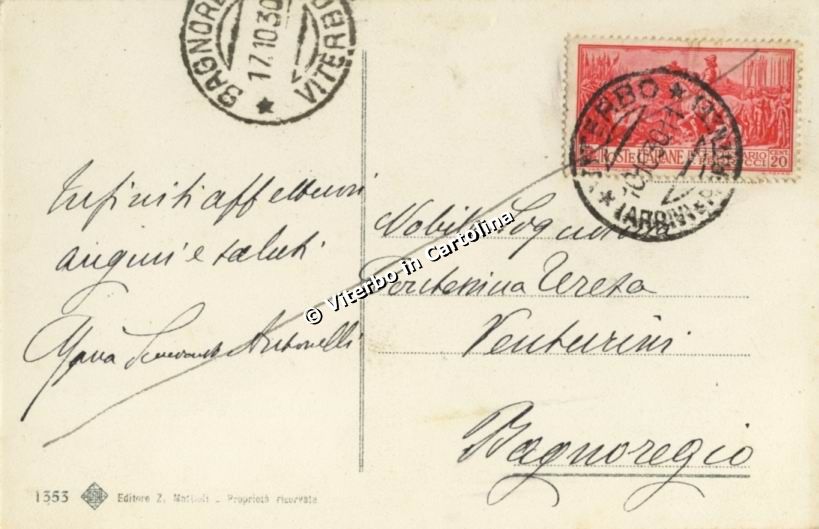 BAGNORE
VITERBO
17.10.30
VITERBO
POSTE ITALIANE
CENT. 20
Infiniti affettuosi
auguri e saluti
Maria Antonelli
Nobile Signora
Contessina Teresa
Venturini
Bagnoregio
© Viterbo in Cartolina
1353 Editore Z. Mattioli - Proprietà riservata